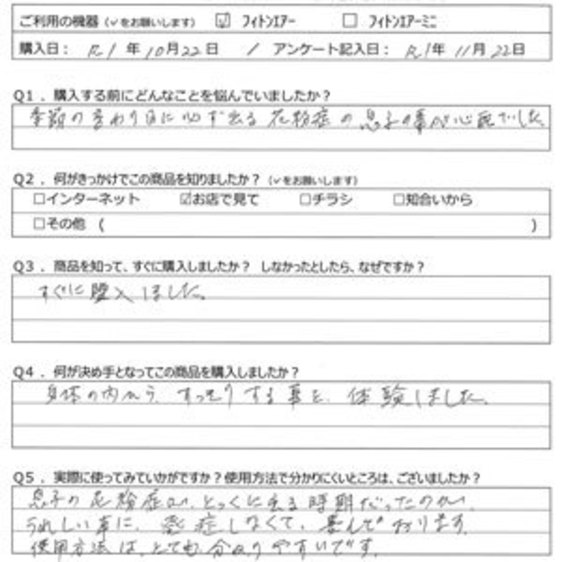 ご利用の機器(✓をお願いします) ☑ フィトンエアー □ フィトンエアーミニ
購入日: R1年10月22日 / アンケート記入日: R1年11月22日
Q1.購入する前にどんなことを悩んでいましたか?
季節の変わり目に必ず出る花粉症の息子の事が心配でした
Q2.何がきっかけでこの商品を知りましたか?(✓をお願いします)
□インターネット ☑お店で見て □チラシ □知合いから
□その他 ( )
Q3.商品を知って、すぐに購入しましたか? しなかったとしたら、なぜですか?
すぐに購入しました。
Q4.何が決め手となってこの商品を購入しましたか?
身体の内から、すっきりする事を、体験しました。
Q5.実際に使ってみていかがですか?使用方法で分かりにくいところは、ございましたか?
息子の花粉症が、とっくに出る時期だったのが、
うれしい事に、発症しなくて、喜んでおります。
使用方法は、とても分かりやすいです。